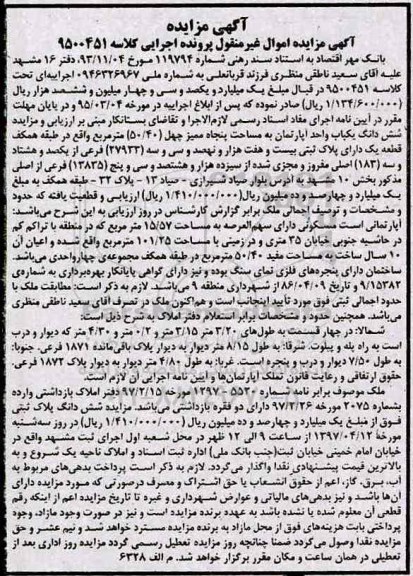 آگهی مزایده
آگهی مزایده اموال غیرمنقول پرونده اجرایی کلاسه ۹۵۰۰۴۵۱
بانک مهر اقتصاد به استناد سند رهنی شماره ۱۱۹۷۹۴ مورخ ۹۳/۱۱/۰۴، دفتر ۱۶ مشهد
علیه آقای سعید ناطقی منظری فرزند قربانعلی به شماره ملی ۰۹۴۶۳۲۶۹۶۷ اجراییه‌ای تحت
کلاسه ۹۵۰۰۴۵۱ در قبال مبلغ یک میلیارد و یکصد و سی و چهار میلیون و ششصد هزار ریال
(۱/۱۳۴/۶۰۰/۰۰۰ ریال) صادر نموده که پس از ابلاغ اجراییه در مورخه ۹۵/۰۳/۰۴ و در پایان مهلت
مقرر در آیین نامه اجرای مفاد اسناد رسمی لازم‌الاجرا و تقاضای بستانکار مبنی بر ارزیابی و مزایده
شش دانگ یکباب واحد آپارتمان به مساحت پنجاه ممیز چهل (۵۰/۴۰) مترمربع واقع در طبقه همکف
قطعه یک دارای پلاک ثبتی بیست و هفت هزار و نهصد و سی و سه (۲۷۹۳۳) فرعی از یکصد و هشتاد
و سه (۱۸۳) اصلی مفروز و مجزی شده از سیزده هزار و هشتصد و سی و پنج (۱۳۸۳۵) فرعی از اصلی
مذکور بخش ۱۰ مشهد به آدرس بلوار صیاد شیرازی - صیاد ۱۳ - پلاک ۳۲ - طبقه همکف به مبلغ
یک میلیارد و چهارصد و ده میلیون ریال (۱/۴۱۰/۰۰۰/۰۰۰ ریال) ارزیابی و قطعیت یافته که حدود
و مشخصات و توصیف اجمالی ملک برابر گزارش کارشناس در روز ارزیابی به این شرح می‌باشد:
آپارتمانی است مسکونی دارای سهم‌العرصه به مساحت ۱۵/۵۷ متر مربع که در منطقه با تراکم کم
در حاشیه جنوبی خیابان ۳۵ متری و در زمینی با مساحت ۱۰۱/۲۵ مترمربع واقع شده و اعیان آن
۱۰ سال ساخت به مساحت مفید ۵۰/۴۰ مترمربع در طبقه همکف مجموعه‌ی چهارواحدی می‌باشد.
ساختمان دارای پنجره‌های فلزی نمای سنگ بوده و نیز دارای گواهی پایانکار بهره‌برداری به شماره‌ی
۹/۱۵۳۸۲ و تاریخ ۸۶/۰۴/۰۹ از شهرداری منطقه ۹ می‌باشد. لازم به ذکر است: مطابقت ملک با
حدود اجمالی ثبتی فوق مورد تأیید اینجانب است و هم‌اکنون ملک در تصرف آقای سعید ناطقی منظری
می‌باشد. همچنین حدود و مشخصات برابر استعلام دفتر املاک به شرح ذیل است:
شمالا: در چهار قسمت به طول‌های ۳/۲۰ متر ۳/۱۵ متر و ۰/۲ متر و ۴/۳۰ متر که دیوار و درب
است به راه پله و پیلوت. شرقا: به طول ۸/۱۵ متر دیوار به دیوار پلاک باقی‌مانده ۱۸۷۱ فرعی. جنوبا:
به طول ۷/۵۰ دیوار و درب و پنجره است. غربا: به طول ۴/۸۰ متر دیوار به دیوار پلاک ۱۸۷۲ فرعی.
حقوق ارتفاقی و رعایت قانون تملک آپارتمان‌ها و آیین نامه اجرایی آن لازم است.
ملک موصوف برابر نامه شماره مورخه ۹۷/۲/۱۵ دفتر املاک بازداشتی وارده
بشماره ۲۰۷۵ مورخه ۹۷/۲/۲۶ دارای دو فقره بازداشتی می‌باشد. مزایده شش دانگ پلاک ثبتی
فوق از مبلغ یک میلیارد و چهارصد و ده میلیون ریال (۱/۴۱۰/۰۰۰/۰۰۰ ریال) در روز سه‌شنبه
مورخهٔ ۱۳۹۷/۰۴/۱۲ از ساعت ۹ الی ۱۲ ظهر در محل شعبه اول اجرای ثبت مشهد واقع در
خیابان امام خمینی خیابان ثبت(جنب بانک ملی) اداره ثبت اسناد و املاک ناحیه یک شروع و به
بالاترین قیمت پیشنهادی نقدا واگذار می‌گردد. لازم به ذکر است پرداخت بدهی‌های مربوط به
آب، برق، گاز، اعم از حقوق انشعاب یا حق اشتراک و مصرف درصورتی که مورد مزایده دارای
آن‌ها باشد و نیز بدهی‌های مالیاتی و عوارض شهرداری و غیره تا تاریخ مزایده اعم از اینکه رقم
قطعی آن معلوم شده یا نشده باشد به عهده برنده مزایده است و نیز در صورت وجود مازاد، وجوه
پرداختی بابت هزینه‌های فوق از محل مازاد به برنده مزایده مسترد خواهد شد و نیم عشر و حق
مزایده نقدا وصول می‌گردد ضمنا چنانچه روز مزایده تعطیل رسمی گردد مزایده روز اداری بعد از
تعطیلی در همان ساعت و مکان مقرر برگزار خواهد شد. م الف ۶۳۲۸